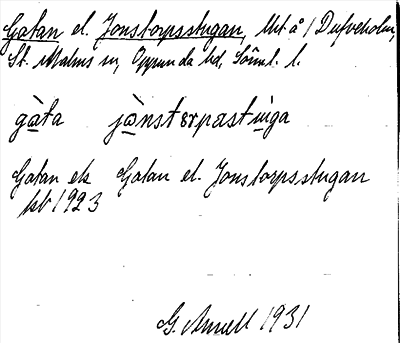 Gatan el. Jonstorpsstugan, lht å 1 Dufveholm,
St. Malms sn, Oppunda hd, Söml. l.
gàta jònstɜrpastùga
Gatan els Gatan el. Jonstorpsstugan
jsb 1923
G. Anell 1931